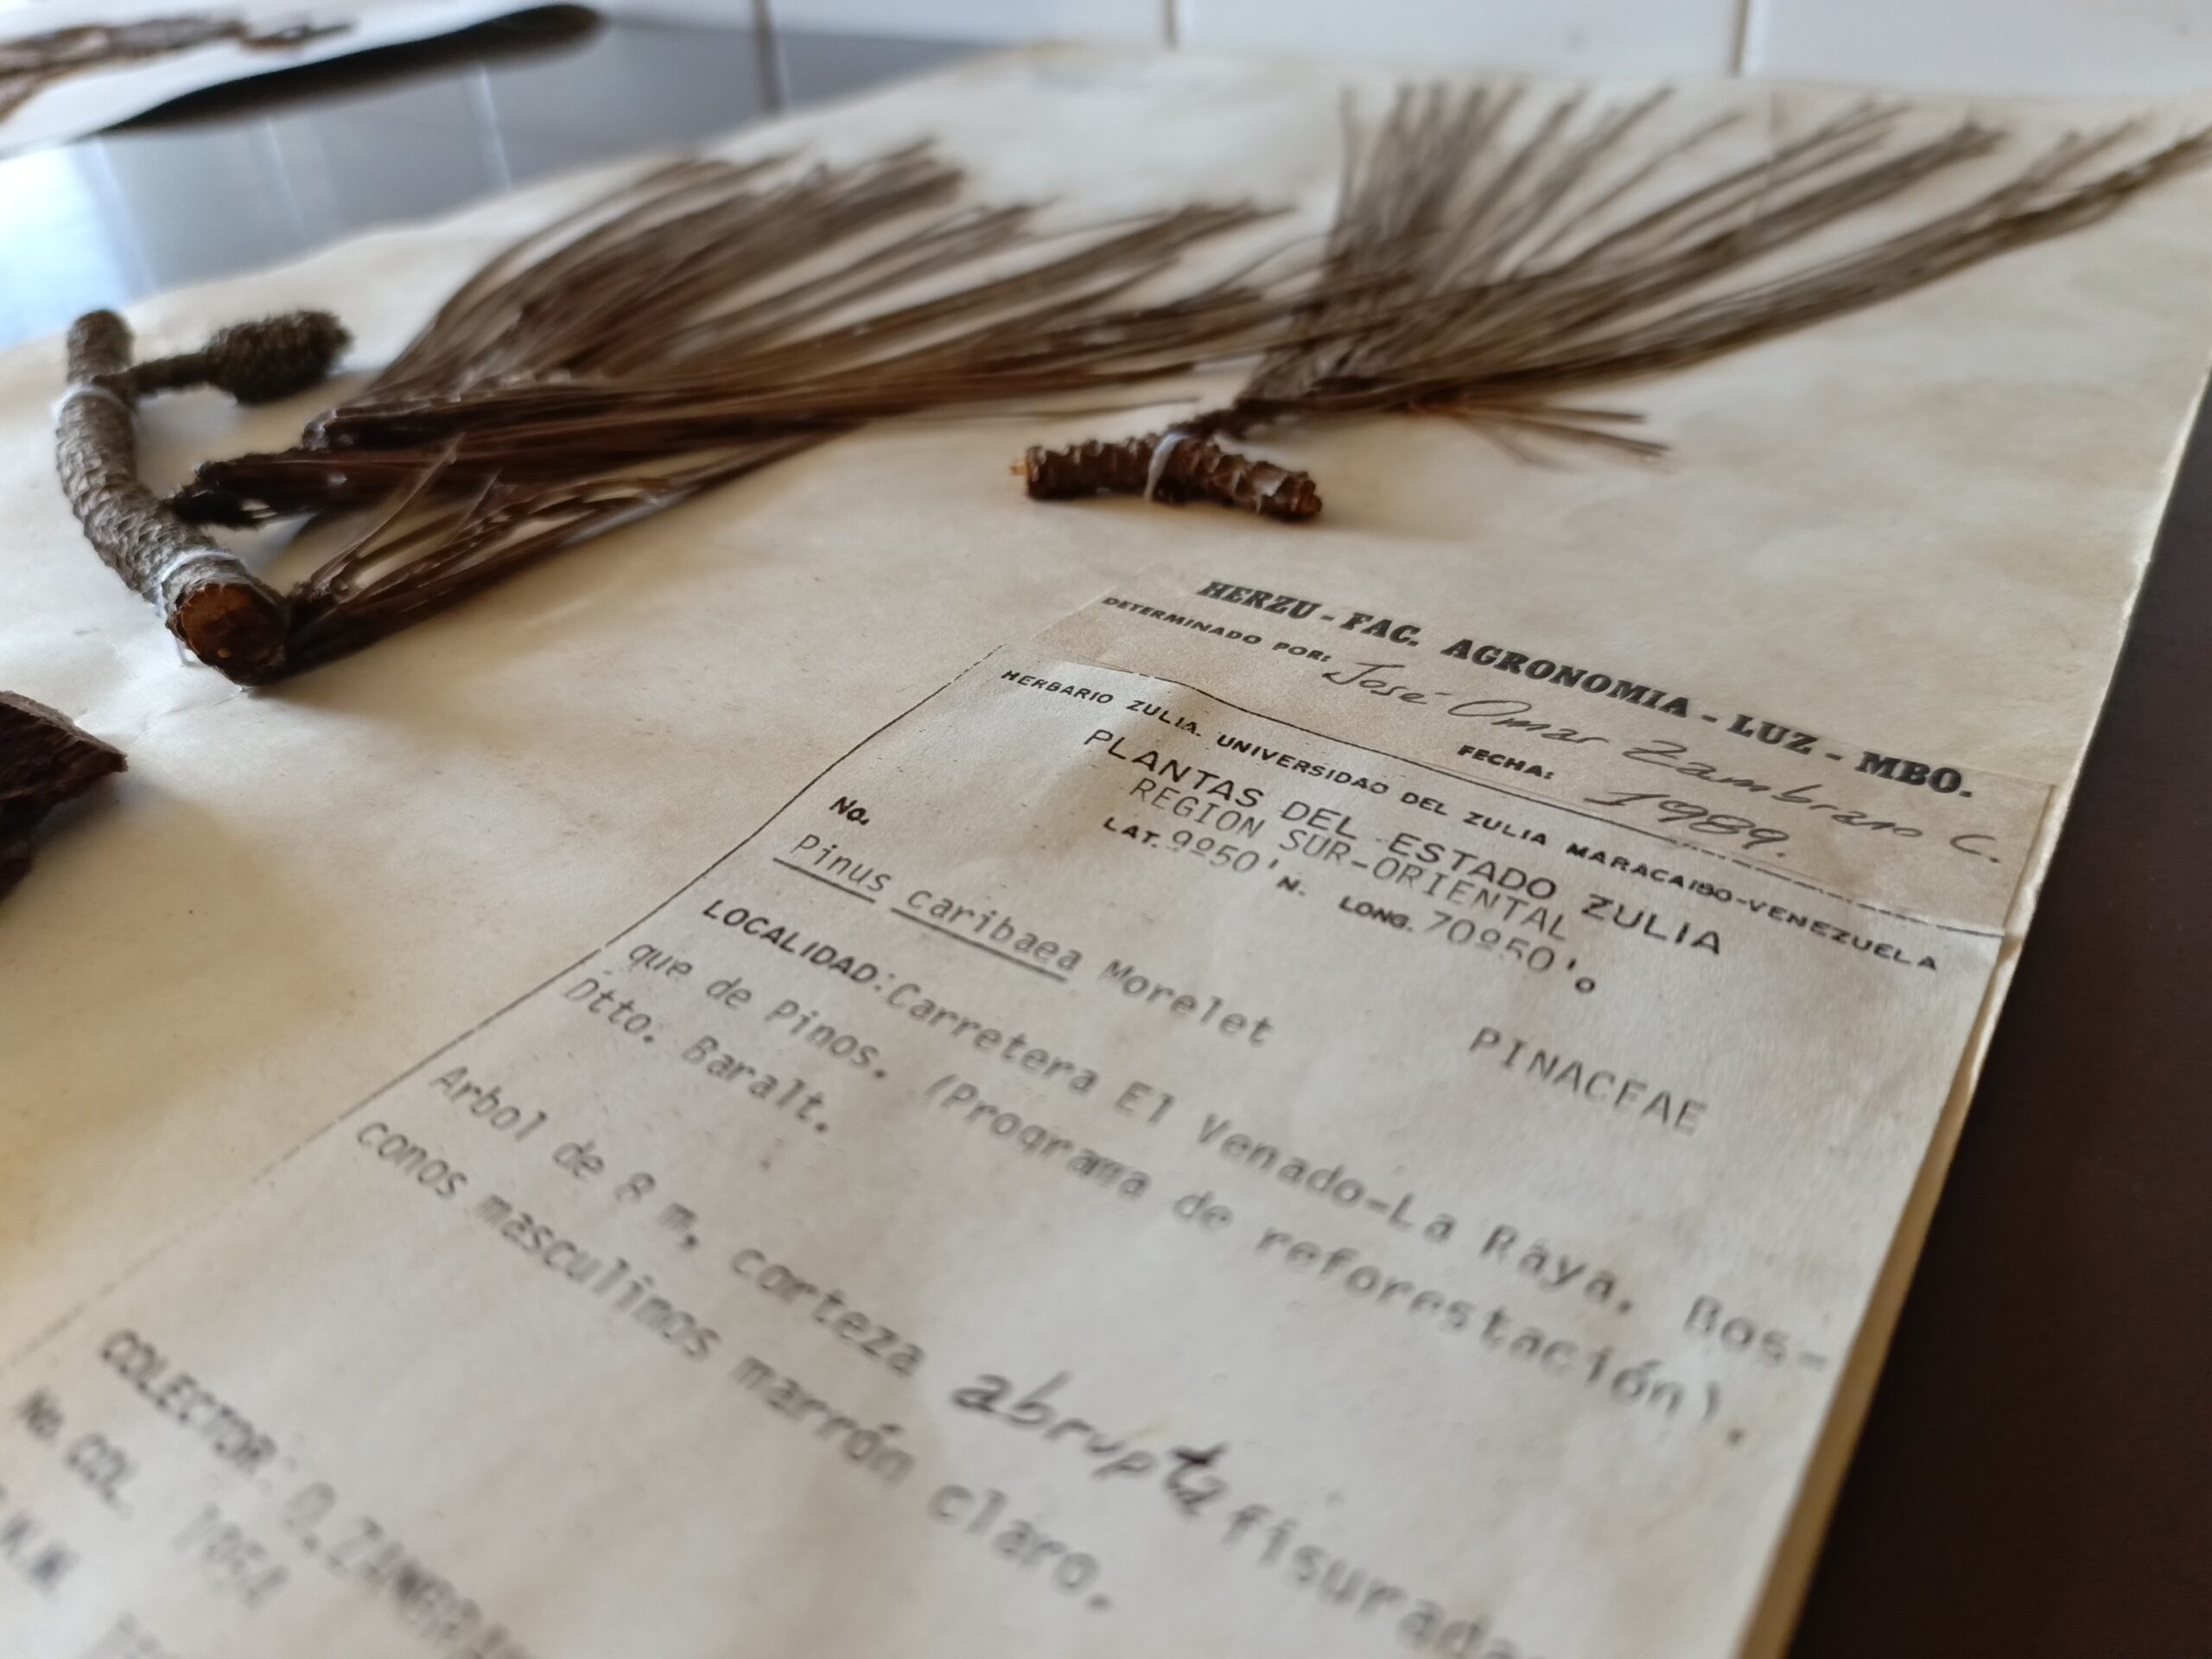 HERZU - FAC. AGRONOMIA - LUZ - MBO.
DETERMINADO POR: José Omar Zambrano C.
FECHA: 1989.
HERBARIO ZULIA. UNIVERSIDAD DEL ZULIA MARACAIBO-VENEZUELA
PLANTAS DEL ESTADO ZULIA
REGION SUR-ORIENTAL
No. LAT. 9º50'N. LONG. 70º50'O
Pinus caribaea Morelet PINACEAE
LOCALIDAD: Carretera El Venado-La Raya. Bos-
que de Pinos. (Programa de reforestación).
Dtto. Baralt.
Arbol de 8 m, corteza abrupta fisurada
conos masculinos marrón claro.
COLECTOR: O. ZAMBRANO
No. COL.